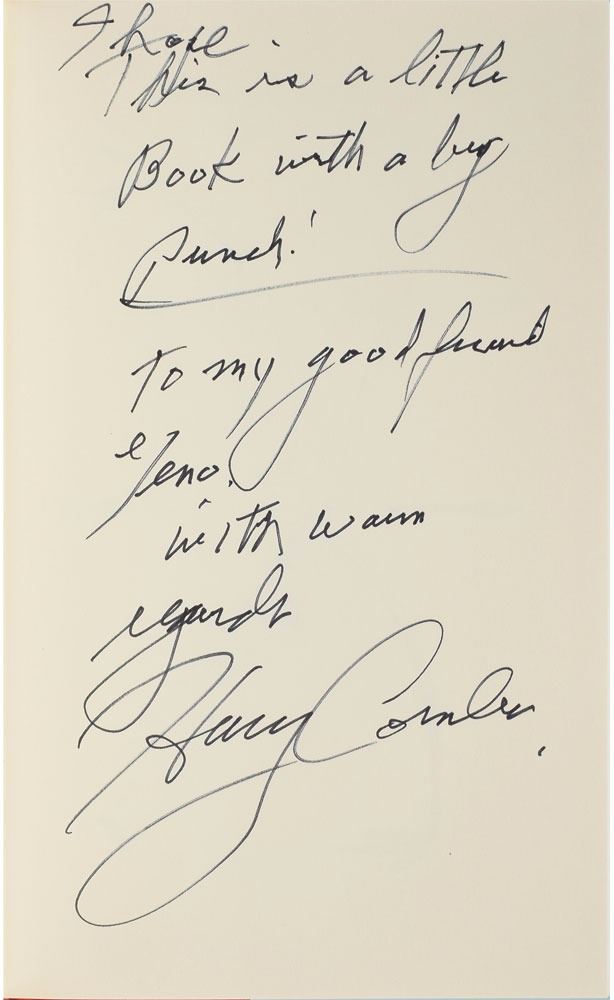 I hope
This is a little
Book with a big
Punch!
To my good friend
Yeno.
with warm
regards
Harry Comber